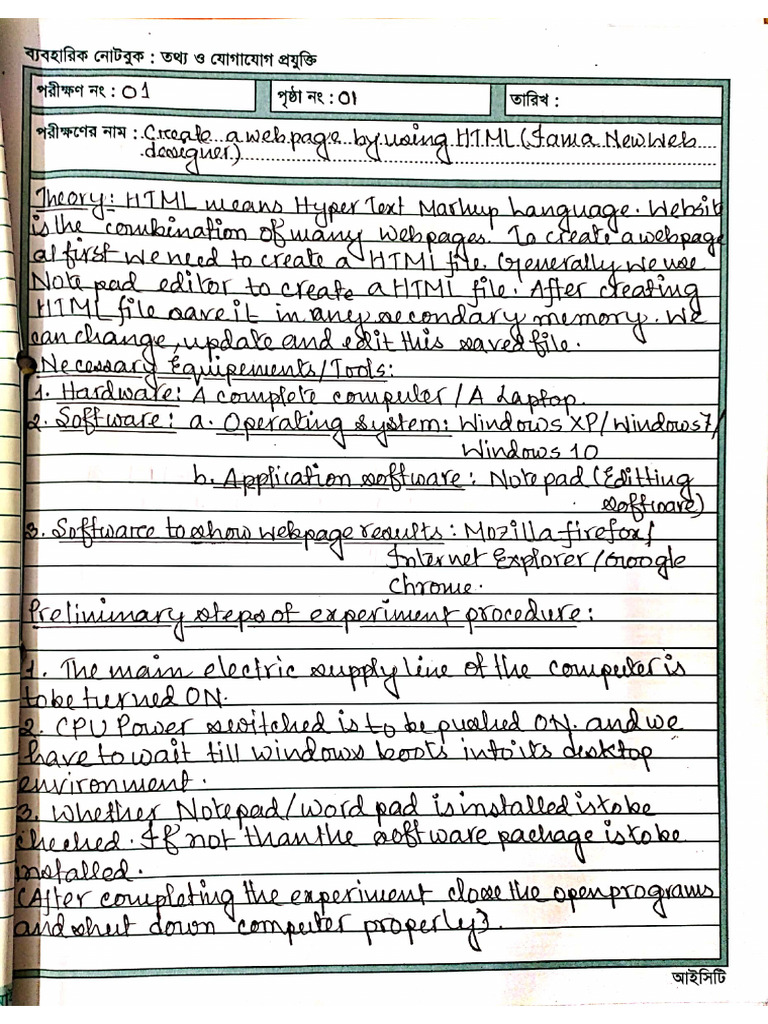 ব্যবহারিক নোটবুক : তথ্য ও যোগাযোগ প্রযুক্তি
পরীক্ষণ নং : 01
পৃষ্ঠা নং : 01
তারিখ :
পরীক্ষণের নাম : Create a web page by using HTML (I am a New Web
designer)
Theory: HTML means Hyper Text Markup Language. Website
is the combination of many webpages. To create a webpage
at first we need to create a HTML file. Generally we use
Note pad editor to create a HTML file. After creating
HTML file save it in any secondary memory. We
can change, update and edit this saved file.
Necessary Equipements/Tools:
1. Hardware: A complete computer / A Laptop.
2. Software: a. Operating system: Windows XP/Windows7/
Windows 10
b. Application software: Note pad (Editting
software)
3. Software to show webpage results: Mozilla firefox/
Internet Explorer/Google
Chrome.
Prelinimary steps of experiment procedure:
1. The main electric supply line of the computer is
to be turned ON.
2. CPU Power switched is to be pushed ON. and we
have to wait till windows boots into its desktop
environment.
3. Whether Notepad/word pad is installed is to be
checked. If not than the software package is to be
installed.
(After completing the experiment close the open programs
and shut down computer properly}.
আইসিটি